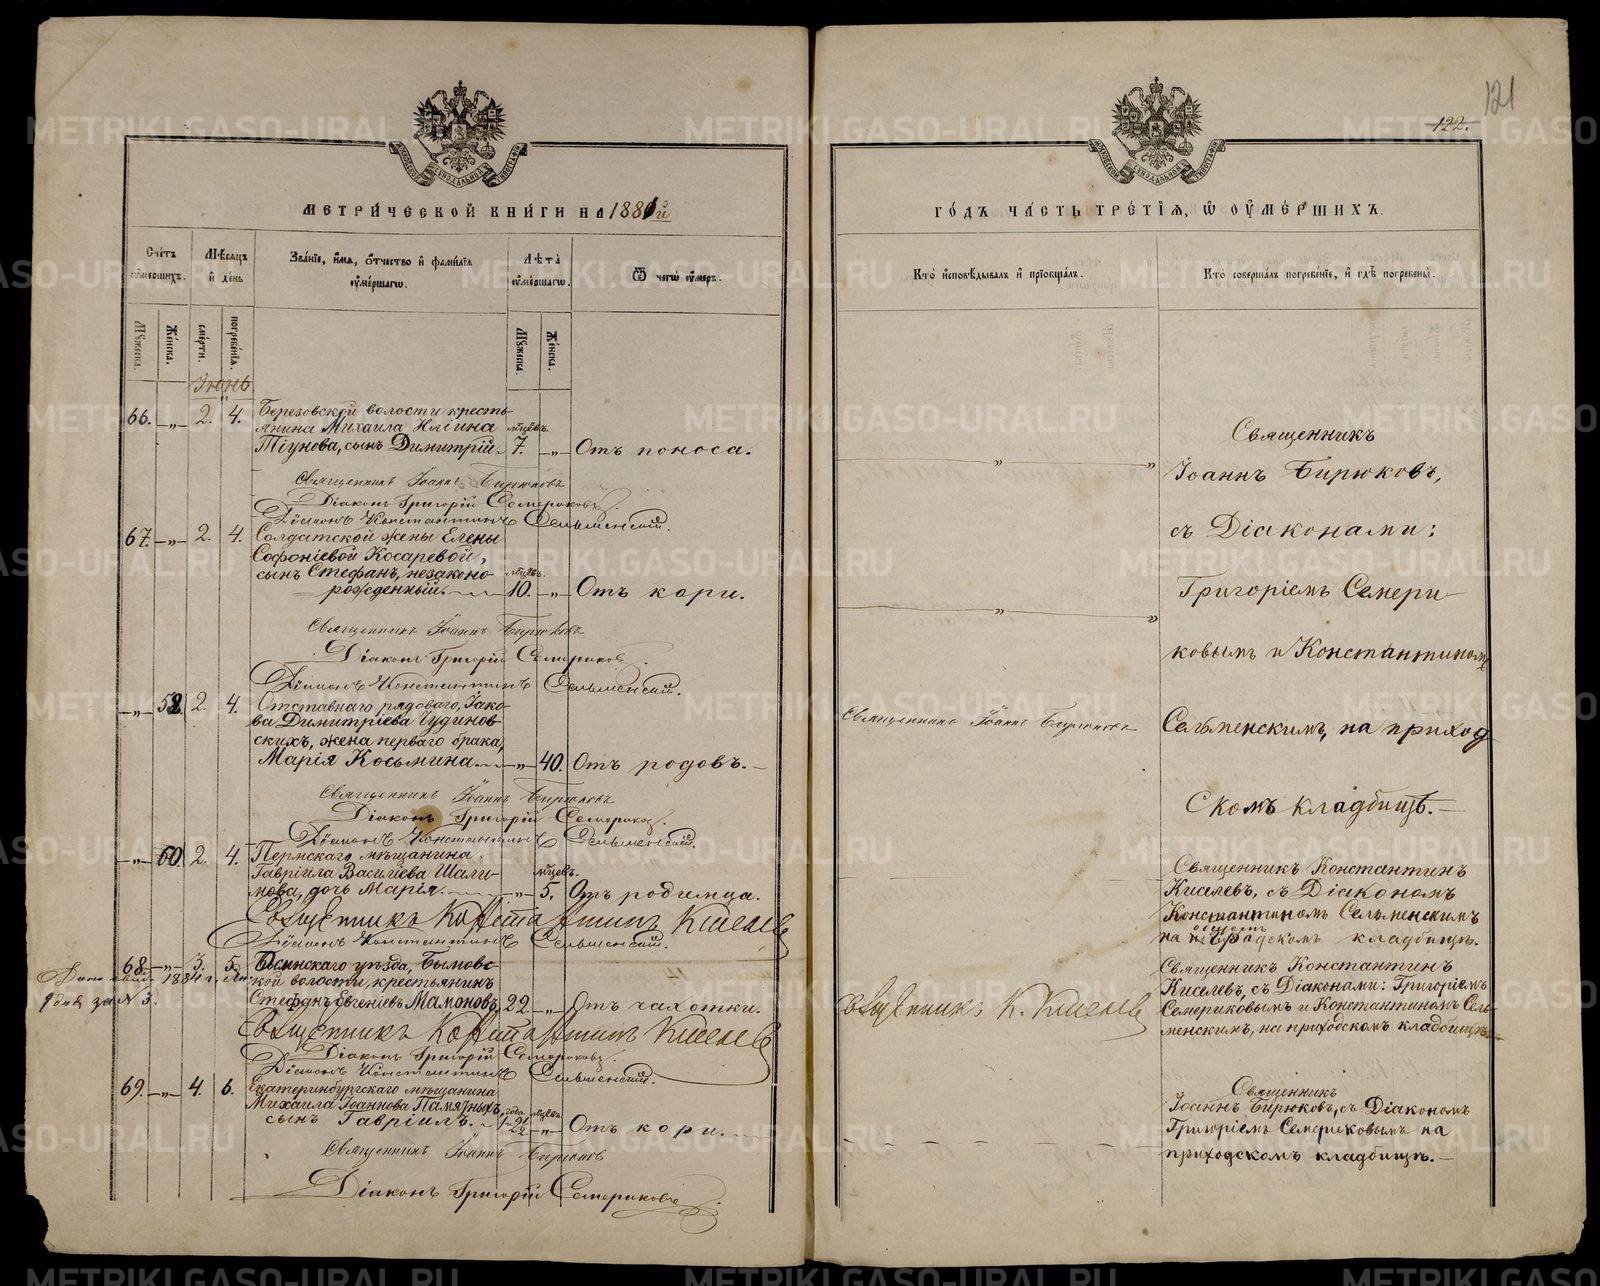 121
122.
МЕТРИЧЕСКОЙ КНИГИ НА 1881й
ГОДЪ ЧАСТЬ ТРЕТІЯ, Ѡ ОУМЕРШИХЪ.
Счетъ оумершихъ.
Мѣсяцъ и день
Званіе, имя, отчество и фамилія оумершагѡ.
Лѣта оумершагѡ.
Ѿ чегѡ оумеръ.
Кто исповѣдывалъ и пріобщалъ.
Кто совершалъ погребеніе, и гдѣ погребены.
Мужеска.
Женска.
смерти.
погребенія.
Мужеска.
Женска.
Іюнь.
66. —„— 2. 4. Березовской волости кресть-
янина Михаила Иліина мѣцевъ.
Тіунова, сынъ Димитрій. 7. —„— Отъ поноса.
Священникъ Іоаннъ Бирюковъ
Діаконъ Григорій Семериковъ.
Діаконъ Константинъ Сельменскій.
67. —„— 2. 4. Солдатской жены Елены
Софоніевой Косаревой,
сынъ Стефанъ, незаконо- мѣцевъ.
рожденный. 10. —„— Отъ кори.
Священникъ Іоаннъ Бирюковъ
Діаконъ Григорій Семериковъ.
Діаконъ Константинъ Сельменскій.
—„— 2. 4. Отставнаго рядоваго, Іако-
ва Димитріева Чудинов-
скихъ, жена перваго брака,
Марія Косьмина. —„— 40. Отъ родовъ.
Священникъ Іоаннъ Бирюковъ
Священникъ Іоаннъ Бирюковъ
Діаконъ Григорій Семериковъ.
Діаконъ Константинъ Сельменскій.
Священникъ
Іоаннъ Бирюковъ,
съ Діаконами:
Григоріемъ Семери-
ковымъ и Константиномъ
Сельменскимъ, на приход
скомъ кладбищѣ.
—„— 60. 2. 4. Пермскаго мѣщанина
Гавріила Василіева Шали- мѣцевъ.
мова, дочь Марія. —„— 5. Отъ родимца.
Священникъ Константинъ Киселевъ
Діаконъ Константинъ Сельменскій.
Священникъ Константинъ
Киселевъ, съ Діакономъ
Константиномъ Сельменскимъ
на градскомъ кладбищѣ.
68. —„— 3. 5. Осинскаго уѣзда, Бымовс-
кой волости, крестьянинъ
Стефанъ Евгеніевъ Мамоновъ, 22 —„— Отъ чахотки.
за № 3.
Священникъ Константинъ Киселевъ
Діаконъ Григорій Семериковъ.
Діаконъ Константинъ Сельменскій.
Священникъ К. Киселевъ
Священникъ Константинъ
Киселевъ, съ Діаконами: Григоріемъ
Семериковымъ и Константиномъ Сель-
менскимъ, на приходскомъ кладбищѣ.
69. —„— 4. 6. Екатеринбургскаго мѣщанина
Михаила Іоаннова Памятныхъ,
сынъ Гавріилъ. —„— Отъ кори.
Священникъ Іоаннъ Бирюковъ
Діаконъ Григорій Семериковъ.
Священникъ
Іоаннъ Бирюковъ, съ Діакономъ
Григоріемъ Семериковымъ на
приходскомъ кладбищѣ.
METRIKI.GASO-URAL.RU